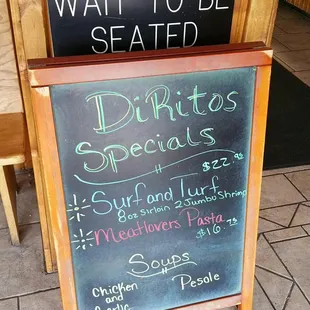 WAIT TO BE
SEATED
DiRitos
Specials
$22.95
Surf and Turf
8oz Sirloin 2 Jumbo Shrimp
Meatlovers Pasta
$16.
Soups
Chicken Pesole
and